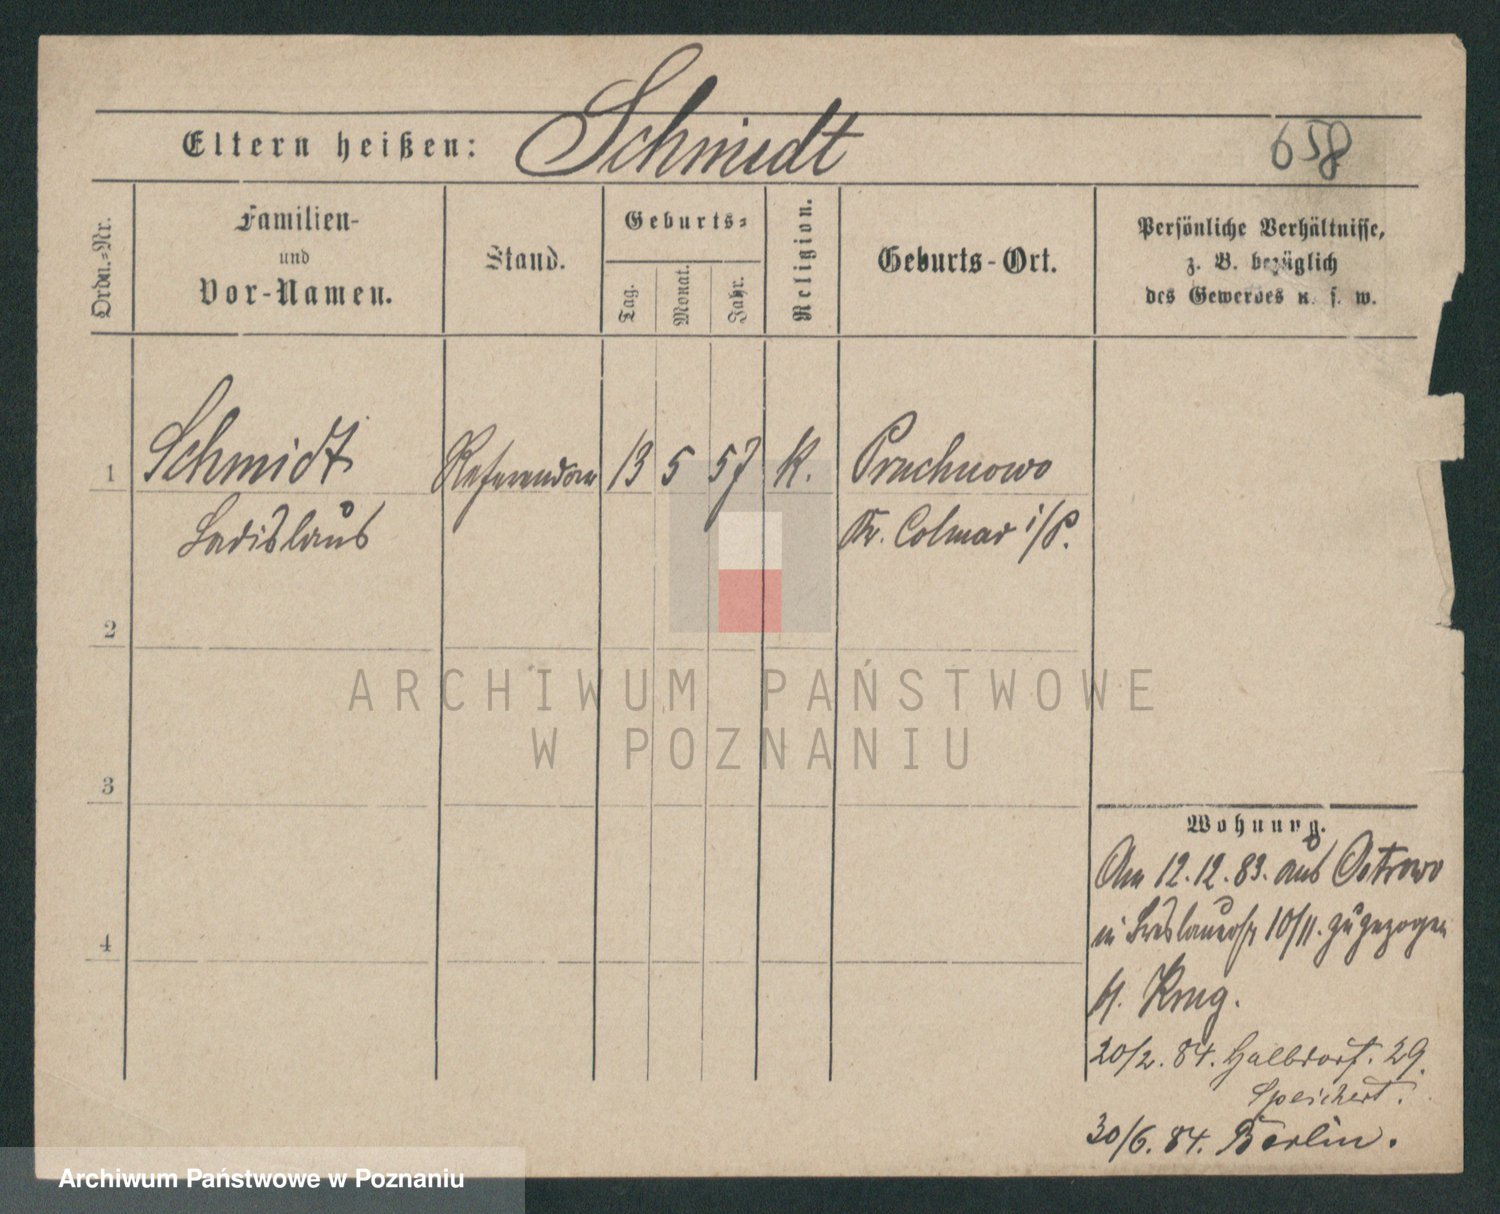 Eltern heißen: Schmidt
658
Ordn.-Nr.
Familien-
und
Vor-Namen.
Stand.
Geburts-
Tag.
Monat.
Jahr.
Religion.
Geburts-Ort.
Persönliche Verhältnisse,
z. B. bezüglich
des Gewerbes u. s. w.
1 Schmidt Referendar 13 5 57 K. Pruchnowo
Ladislaus Kr. Colmar i/P.
2
3
4
Wohnung.
Am 12.12.83. aus Ostrowo
in Breslauerstr 10/11. zugezogen
b/. Krug.
20/2. 84. Halbdorf. 29.
Speichert.
30/6. 84. Berlin.
ARCHIWUM PAŃSTWOWE
W POZNANIU
Archiwum Państwowe w Poznaniu